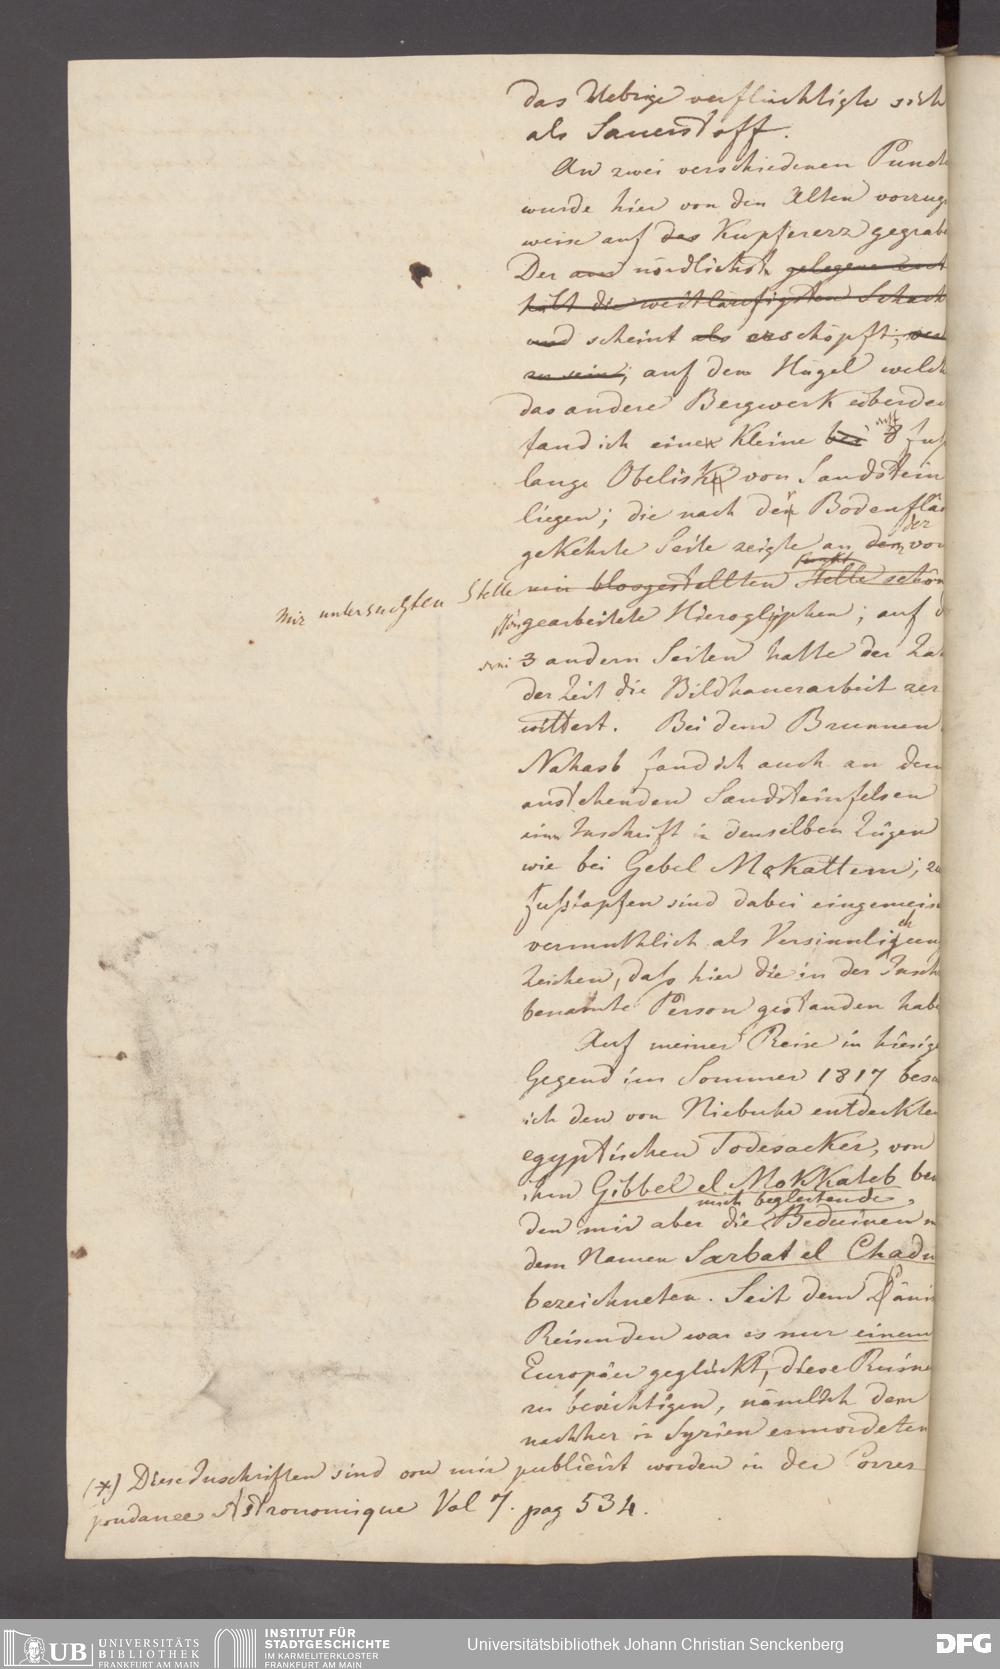 das Uebrige verflüchtigte sich
als Sauerstoff.
An zwei verschiedenen Punct
wurde hier von den Alten vorzugs
weise auf das Kupfererz gegrabe
Der am nördlichste gelegene ent
hält die weitläufigsten Schach
und scheint als erschöpft;
zu sein; auf dem Hügel welch
das andere Bergwerk überdec
mst
fand ich eine kleine bei 8 fuß
lange Obeliske von Sandstein
liegen; die nach der Bodenfläc
der
gekehrte Seite zeigte an dem von
mir untersuchten Stelle mir blosgestellten Stelle schön
schön gearbeitete Hieroglyphen; auf d
drei 3 andern Seiten hatte der Zah
der Zeit die Bildhauerarbeit zer
wittert. Bei dem Brunnen
Nahasb fand ich auch an dem
anstehenden Sandsteinfelsen
eine Inschrift in denselben Zügen
wie bei Gebel Mokattem; zw
Fußtapfen sind dabei eingemeis
vermuthlich als Versinnligeen
ch
Zeichen, daß hier die in der Insch
benamte Person gestanden habe
Auf meiner Reise in hiesige
Gegend im Sommer 1817 besu
ich den von Niebuhr entdeckten
egyptischen Todesacker, von
ihm Gibbel el Mokkateb ben
mich begleitende
den mir aber die Beduinen m
dem Namen Sarbat el Chadu
bezeichneten. Seit dem Dänis
Reisenden war es nur einem
Europäer geglückt, diese Ruine
zu besichtigen, nämlich dem
nachher in Syrien ermordeten
(*) Diese Inschriften sind von mir publicirt worden in der Corres
pondance Astronomique Vol 7. pag 534.
UB UNIVERSITÄTS
BIBLIOTHEK
FRANKFURT AM MAIN
INSTITUT FÜR
STADTGESCHICHTE
IM KARMELITERKLOSTER
FRANKFURT AM MAIN
Universitätsbibliothek Johann Christian Senckenberg
DFG